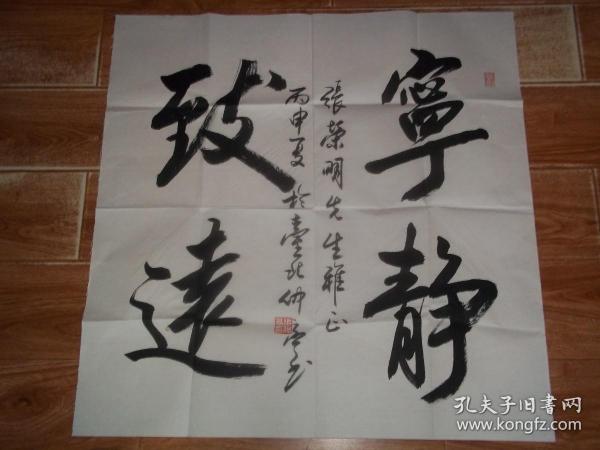 寧靜
張榮明先生雅正
丙申夏於臺北仲
致遠
孔夫子旧書网
www.kongfz.com